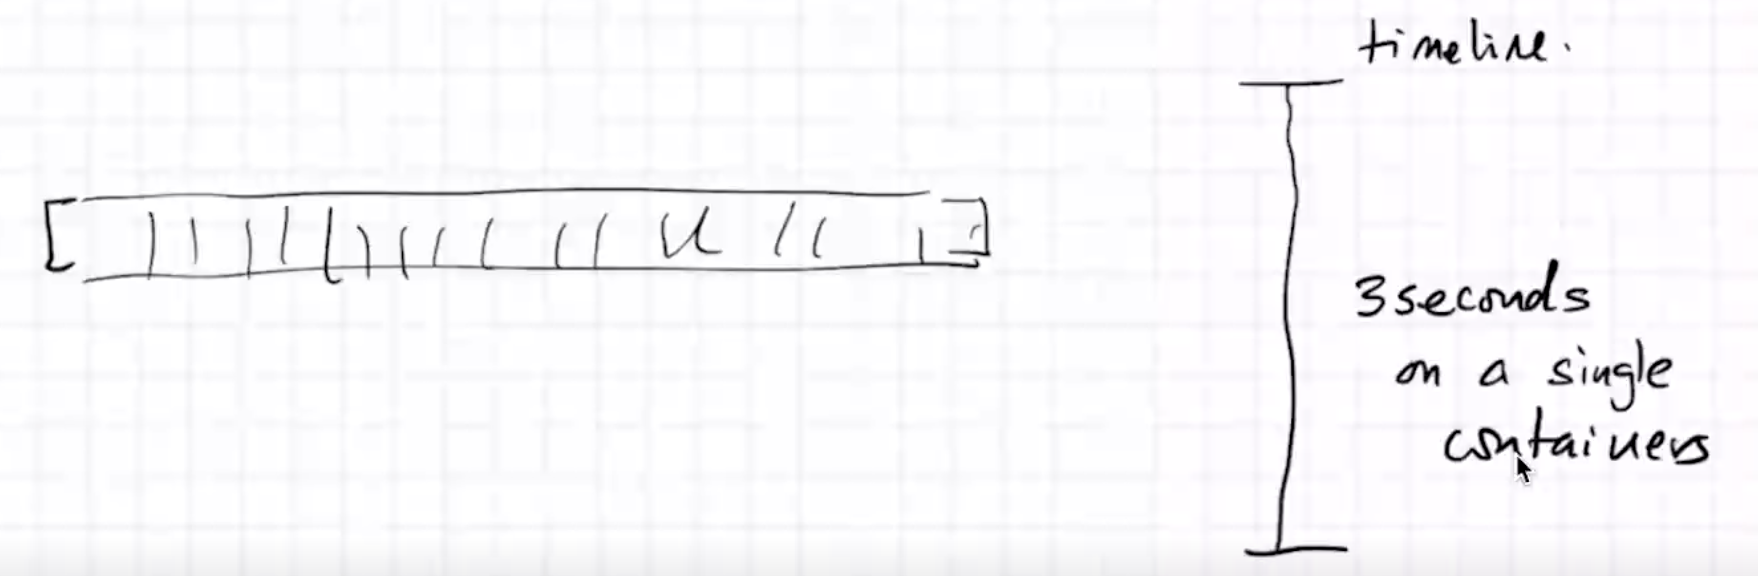 timeline.
3 seconds
on a single
containers